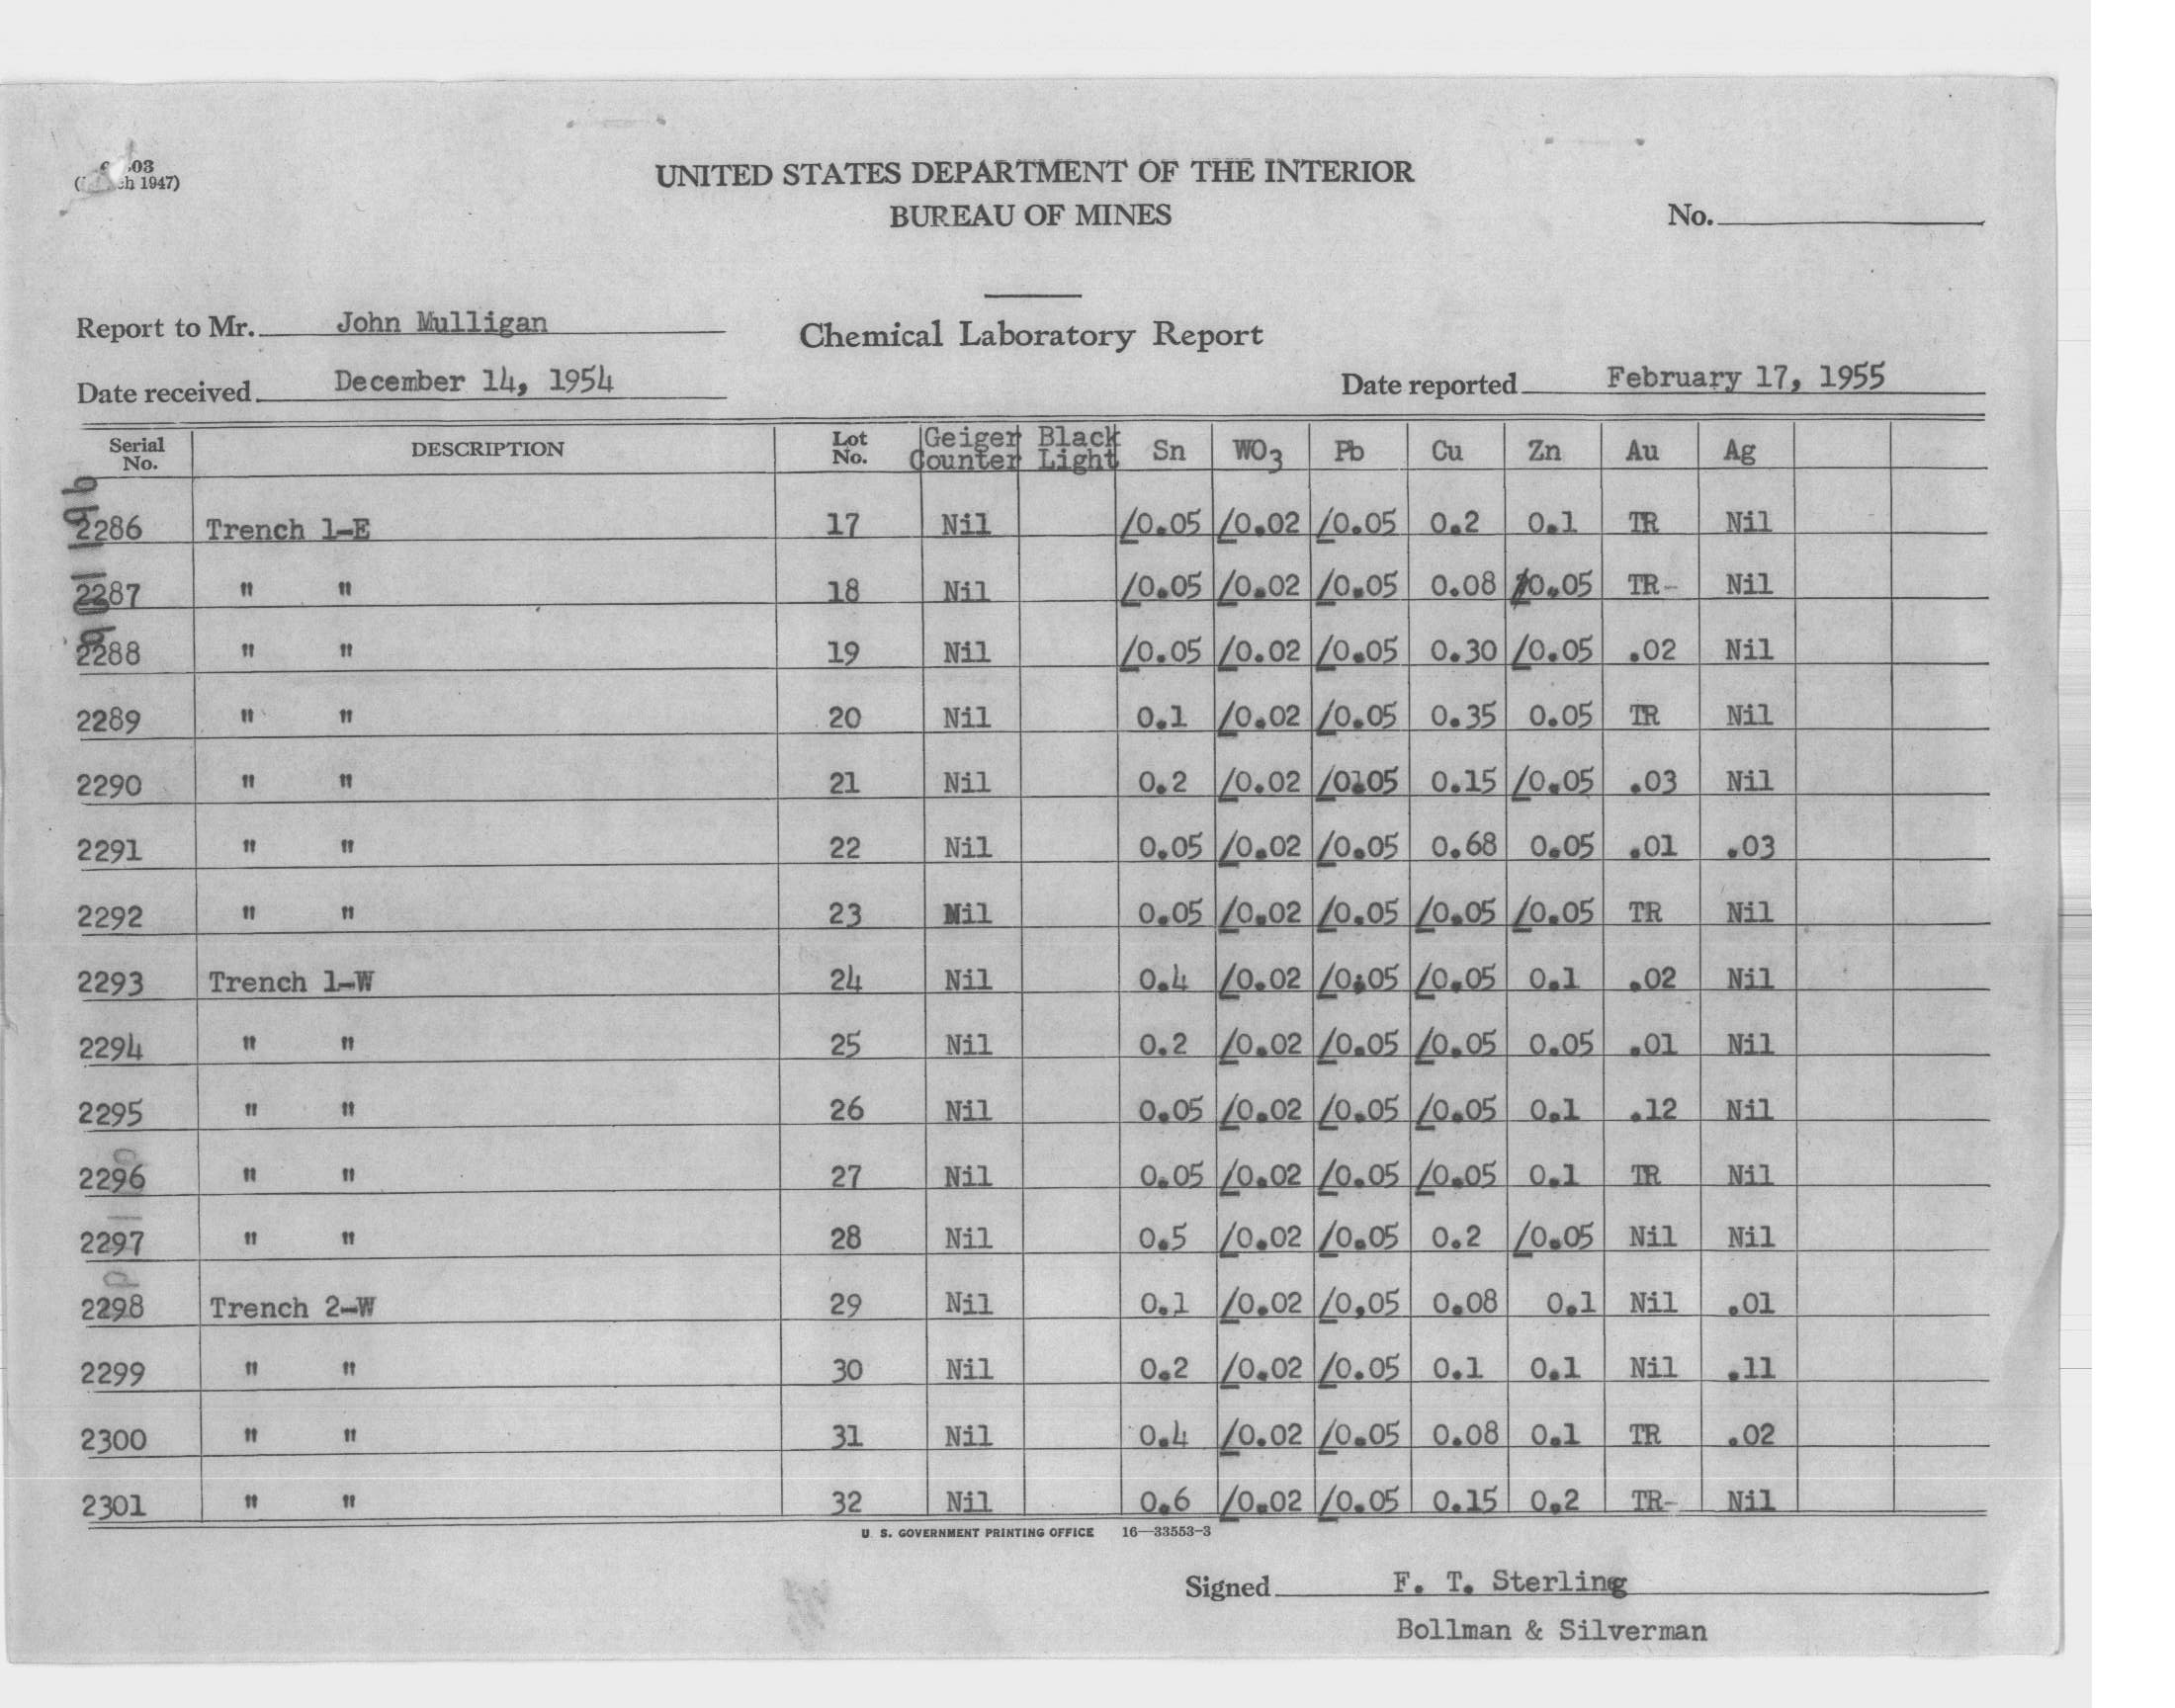 .03
(    ch 1947)
UNITED STATES DEPARTMENT OF THE INTERIOR
BUREAU OF MINES
No.
Report to Mr. John Mulligan
Chemical Laboratory Report
Date received December 14, 1954
Date reported February 17, 1955
Serial No. DESCRIPTION Lot No. Geiger Counter Black Light Sn WO3 Pb Cu Zn Au Ag
2286 Trench 1-E 17 Nil /0.05 /0.02 /0.05 0.2 0.1 TR Nil
2287 " " 18 Nil /0.05 /0.02 /0.05 0.08 /0.05 TR- Nil
2288 " " 19 Nil /0.05 /0.02 /0.05 0.30 /0.05 .02 Nil
2289 " " 20 Nil 0.1 /0.02 /0.05 0.35 0.05 TR Nil
2290 " " 21 Nil 0.2 /0.02 /0.05 0.15 /0.05 .03 Nil
2291 " " 22 Nil 0.05 /0.02 /0.05 0.68 0.05 .01 .03
2292 " " 23 Nil 0.05 /0.02 /0.05 /0.05 /0.05 TR Nil
2293 Trench 1-W 24 Nil 0.4 /0.02 /0.05 /0.05 0.1 .02 Nil
2294 " " 25 Nil 0.2 /0.02 /0.05 /0.05 0.05 .01 Nil
2295 " " 26 Nil 0.05 /0.02 /0.05 /0.05 0.1 .12 Nil
2296 " " 27 Nil 0.05 /0.02 /0.05 /0.05 0.1 TR Nil
2297 " " 28 Nil 0.5 /0.02 /0.05 0.2 /0.05 Nil Nil
2298 Trench 2-W 29 Nil 0.1 /0.02 /0.05 0.08 0.1 Nil .01
2299 " " 30 Nil 0.2 /0.02 /0.05 0.1 0.1 Nil .11
2300 " " 31 Nil 0.4 /0.02 /0.05 0.08 0.1 TR .02
2301 " " 32 Nil 0.6 /0.02 /0.05 0.15 0.2 TR- Nil
U. S. GOVERNMENT PRINTING OFFICE 16—33553-3
Signed F. T. Sterling
Bollman & Silverman